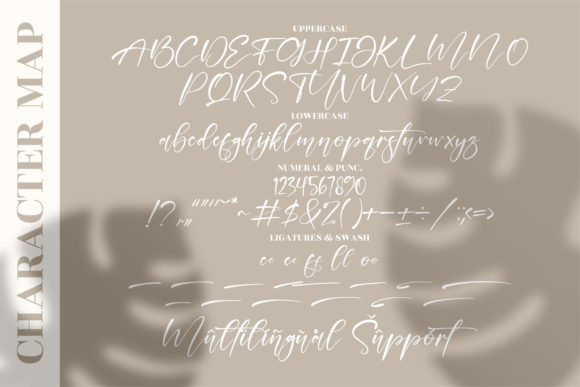 CHARACTER MAP
UPPERCASE
ABCDEFGHIJKLMNO
PQRSTUVWXYZ
LOWERCASE
abcdefghijklmnopqrstuvwxyz
NUMERAL & PUNC.
1234567890
!?,,""''""~*~#$&%()+-±÷/:;<=>
LIGATURES & SWASH
cc ee ff ll oo
Mûltïlíñgùål Šûppòrt